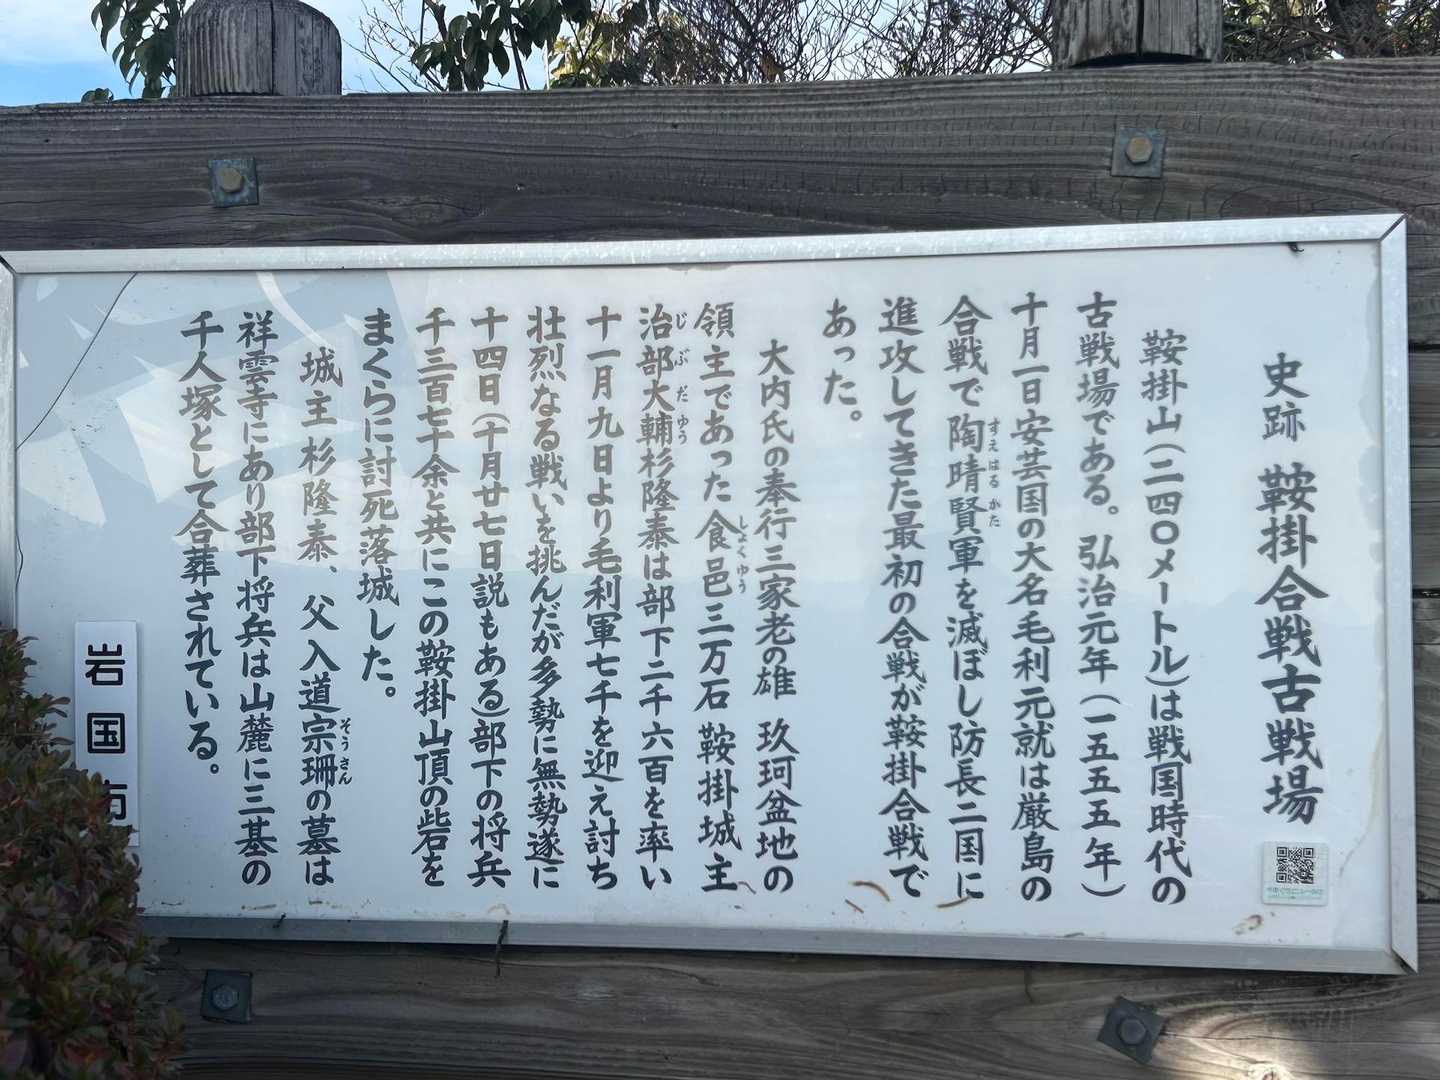 史跡 鞍掛合戦古戦場
鞍掛山(二四〇メートル)は戦国時代の
古戦場である。弘治元年(一五五五年)
十月一日安芸国の大名毛利元就は厳島の
合戦で陶晴賢軍を滅ぼし防長二国に
すえはるかた
進攻してきた最初の合戦が鞍掛合戦で
あった。
大内氏の奉行三家老の雄 玖珂盆地の
領主であった食邑三万石 鞍掛城主
しょくゆう
治部大輔杉隆泰は部下二千六百を率い
じぶだゆう
十一月九日より毛利軍七千を迎え討ち
壮烈なる戦いを挑んだが多勢に無勢遂に
十四日(十月廿七日説もある)部下の将兵
千三百七十余と共にこの鞍掛山頂の砦を
まくらに討死落城した。
城主杉隆泰、父入道宗珊の墓は
そうさん
祥雲寺にあり部下将兵は山麓に三基の
千人塚として合葬されている。
岩国市